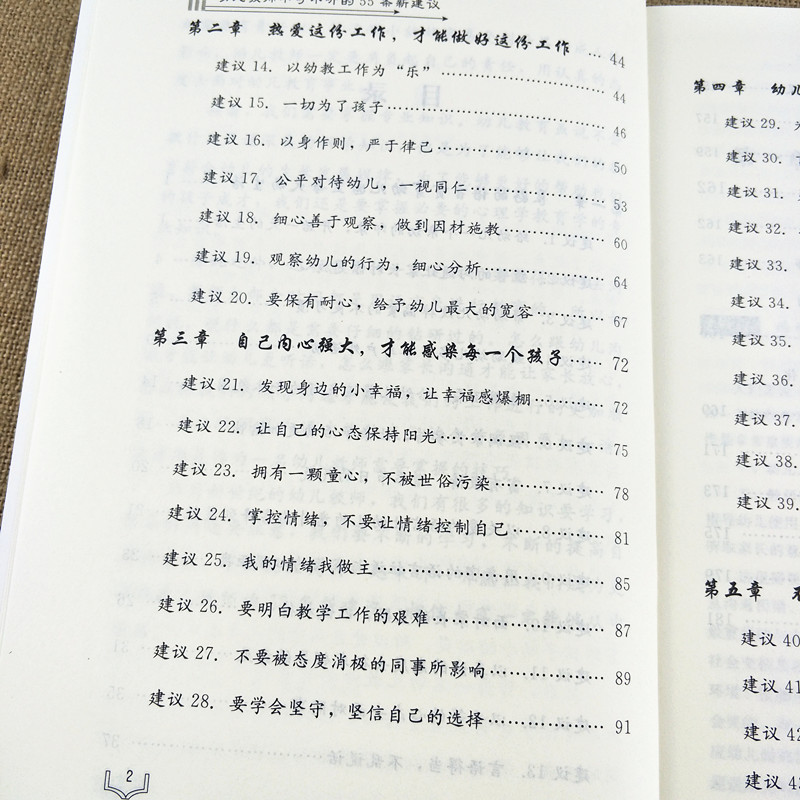 的 55 条新建议
第二章 热爱这份工作，才能做好这份工作 … 44
建议 14. 以幼教工作为“乐” …………………… 44
建议 15. 一切为了孩子 …………………… 46
建议 16. 以身作则，严于律己 …………………… 50
建议 17. 公平对待幼儿，一视同仁 …………………… 53
建议 18. 细心善于观察，做到因材施教 …………………… 60
建议 19. 观察幼儿的行为，细心分析 …………………… 64
建议 20. 要保有耐心，给予幼儿最大的宽容 …………………… 67
第三章 自己内心强大，才能感染每一个孩子 …… 72
建议 21. 发现身边的小幸福，让幸福感爆棚 …………………… 72
建议 22. 让自己的心态保持阳光 …………………… 75
建议 23. 拥有一颗童心，不被世俗污染 …………………… 78
建议 24. 掌控情绪，不要让情绪控制自己 …………………… 81
建议 25. 我的情绪我做主 …………………… 85
建议 26. 要明白教学工作的艰难 …………………… 87
建议 27. 不要被态度消极的同事所影响 …………………… 89
建议 28. 要学会坚守，坚信自己的选择 …………………… 91
2
第四章 幼儿
建议 29.
建议 30.
建议 31.
建议 32.
建议 33.
建议 34.
建议 35.
建议 36.
建议 37.
建议 38.
建议 39.
第五章
建议 40
建议 41
建议 42
建议 43